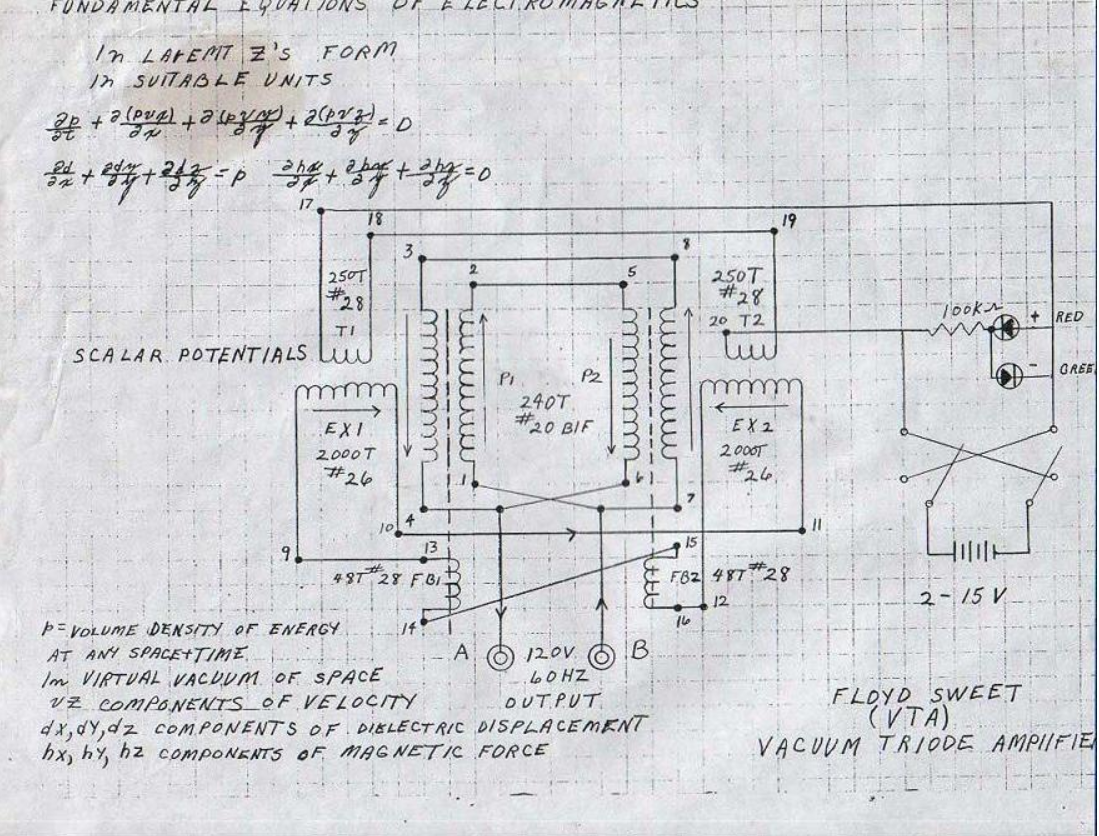 FUNDAMENTAL EQUATIONS OF ELECTROMAGNETICS
In LAREMT Z'S FORM
In SUITABLE UNITS
∂p/∂t + ∂(pvx)/∂x + ∂(pvy)/∂y + ∂(pvz)/∂z = 0
∂d/∂x + ∂dy/∂y + ∂dz/∂z = p ∂hx/∂x + ∂hy/∂y + ∂hz/∂z = 0
17
18
19
3
8
2
5
250T
#28
T1
250T
#28
20 T2
100KΩ
+ RED
- GREE
SCALAR POTENTIALS
P1
P2
240T
#20 BIF
EX1
2000T
#26
EX2
2000T
#26
1
6
4
7
10
11
9
13
15
48T #28 FB1
FB2 48T #28
12
14
16
2-15 V
A
120V
B
60HZ
OUTPUT
P = VOLUME DENSITY OF ENERGY
AT ANY SPACE+TIME
In VIRTUAL VACUUM OF SPACE
VZ COMPONENTS OF VELOCITY
dx, dY, dz COMPONENTS OF DIELECTRIC DISPLACEMENT
hx, hY, hz COMPONENTS OF MAGNETIC FORCE
FLOYD SWEET
(VTA)
VACUUM TRIODE AMPlIFIE